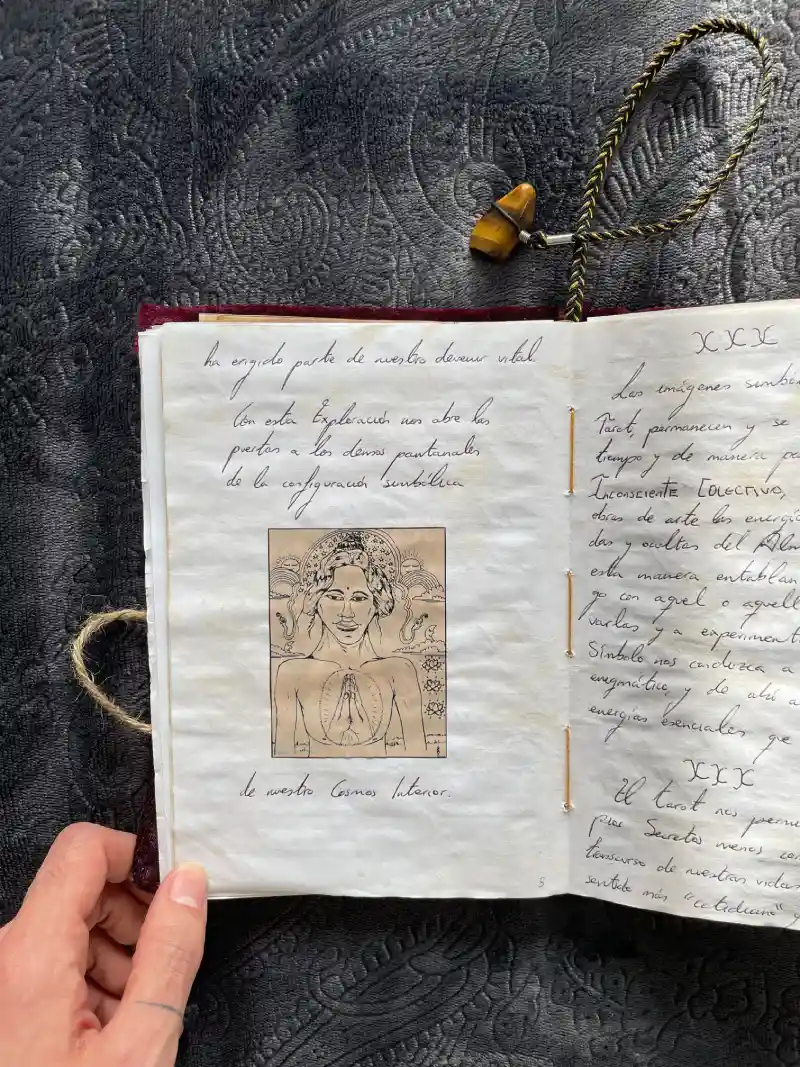 ha erigido parte de nuestro devenir vital.
Con esta Exploración nos abre las
puertas a los densos pantanales
de la configuración simbólica
de nuestro Cosmos Interior.
5
XXX
Las imágenes simbó
Tarot, permanecen y se
tiempo y de manera pa
INCONSCIENTE COLECTIVO,
obras de arte las energí
das y ocultas del Alm
esta manera entablan
go con aquel o aquell
varlas y a experiment
Símbolo nos conduzca a
enigmático, y de ahí a
energías esenciales que
XXX
El tarot nos perm
Secretos menos
transcurso de nuestras vidas
sentido más "cotidiano" y